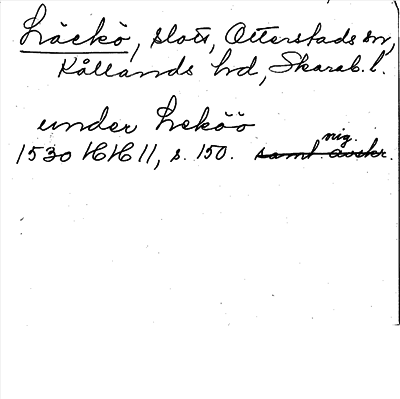 Läckö, slott, Otterstads sn,
Kållands hd, Skarab. l.
under Leköö
1530 HH 11, s. 150. saml. avskr. nig.